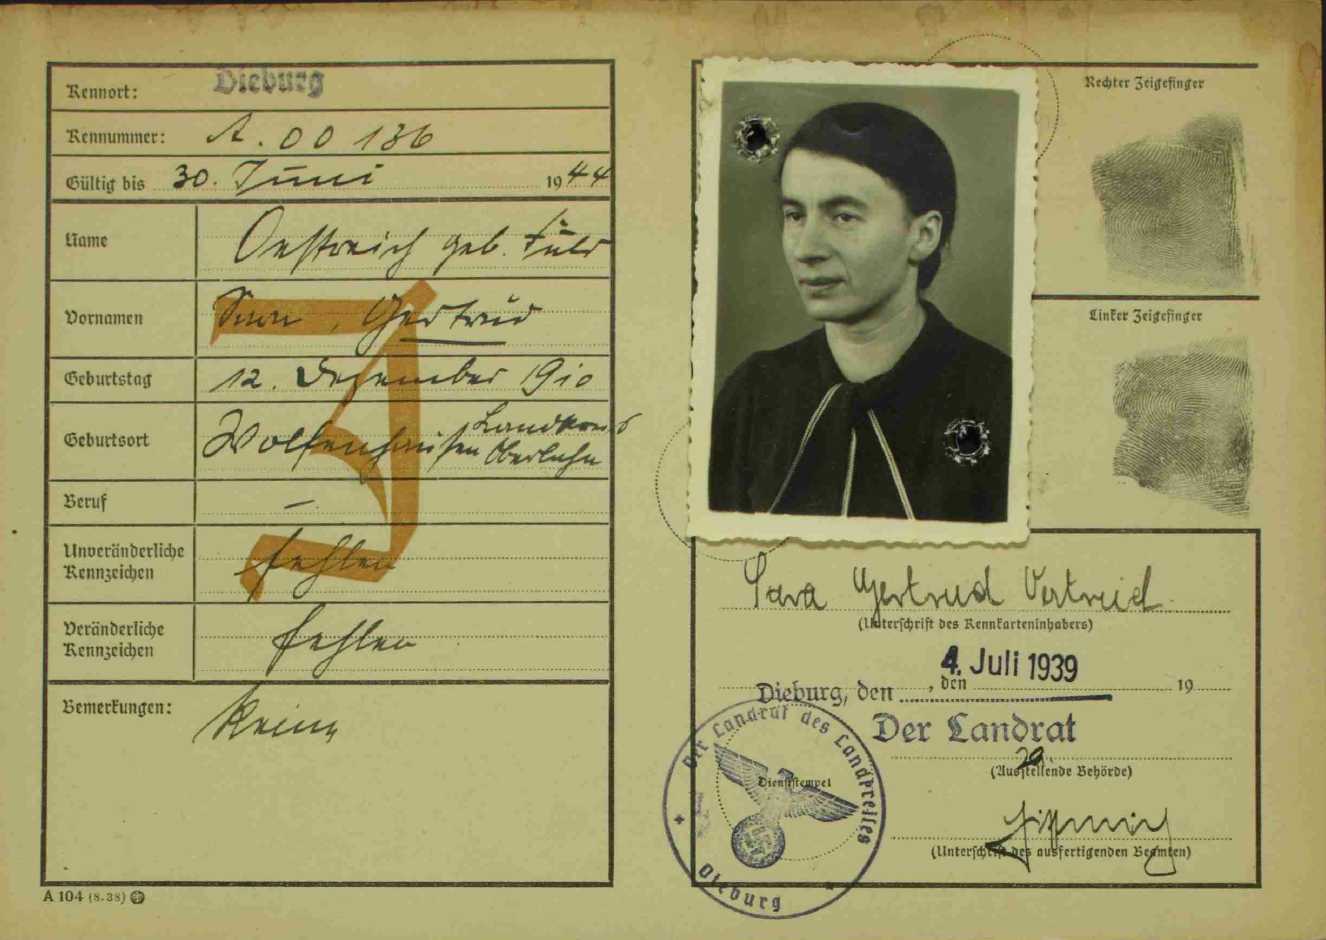 Kennort: Dieburg
Kennummer: A. 00 136
Gültig bis 30. Juni 1944
Name Oestreich geb. Fuld
Vornamen Sara, Gertrud
Geburtstag 12. Dezember 1910
Geburtsort Wolfenhausen Landkreis
Oberlahn
Beruf –
Unveränderliche
Kennzeichen fehlen
Veränderliche
Kennzeichen fehlen
Bemerkungen: Keine
J
A 104 (8.38)
Rechter Zeigefinger
Linker Zeigefinger
Sara Gertrud Oestreich
(Unterschrift des Kennkarteninhabers)
4. Juli 1939
Dieburg, den , den 19
Der Landrat
(Ausstellende Behörde)
(Unterschrift des ausfertigenden Beamten)
Der Landrat des Landkreises
Dienststempel
Dieburg